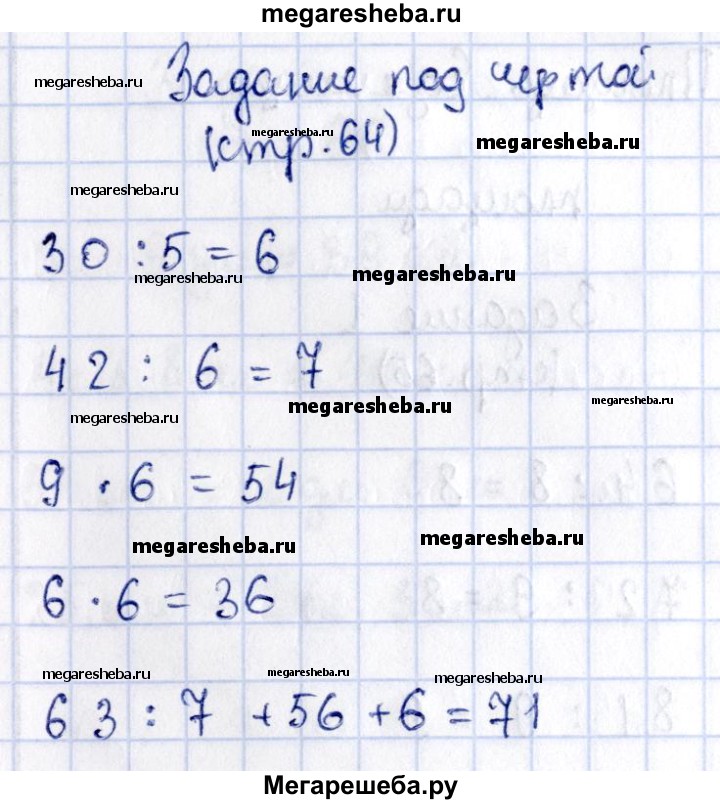 megaresheba.ru
megaresheba.ru
Задание под чертой
megaresheba.ru
(стр. 64)
megaresheba.ru
megaresheba.ru
30 : 5 = 6
megaresheba.ru
megaresheba.ru
42 : 6 = 7
megaresheba.ru
megaresheba.ru
megaresheba.ru
9 · 6 = 54
megaresheba.ru
megaresheba.ru
6 · 6 = 36
megaresheba.ru
megaresheba.ru
megaresheba.ru
63 : 7 + 56 + 6 = 71
Мегарешеба.ру